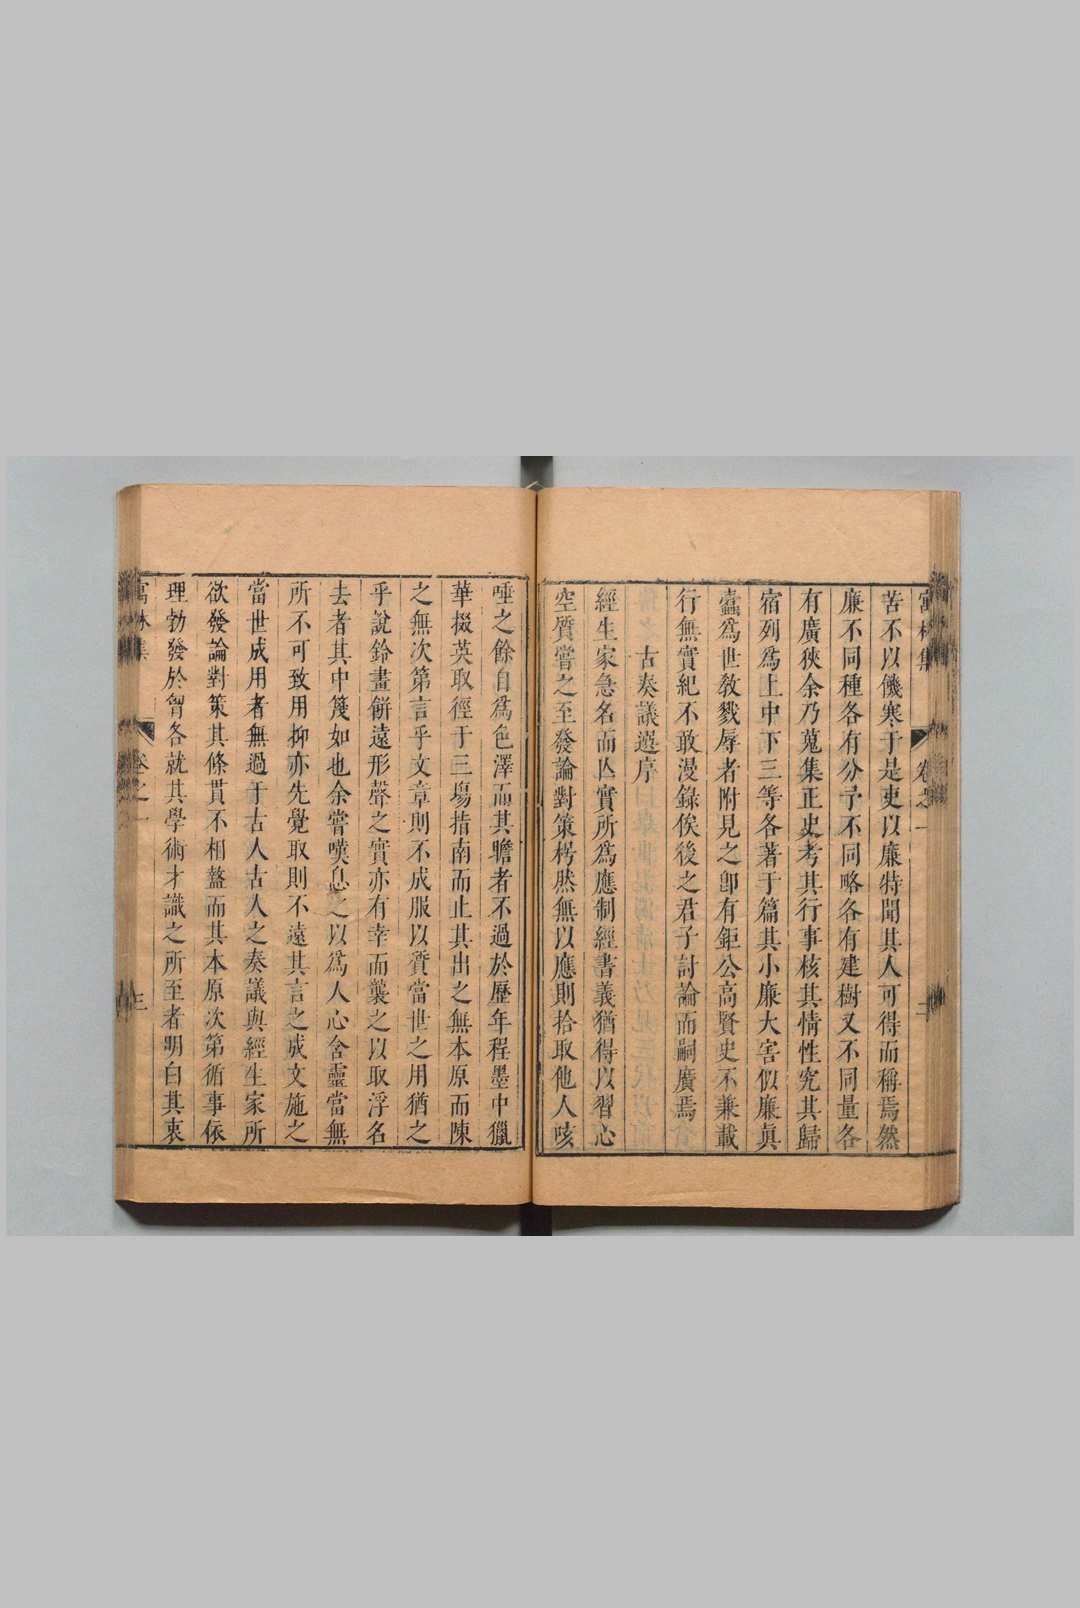 寓林集 卷之一 二
苦不以饑寒于是吏以廉特聞其人可得而稱焉然
廉不同種各有分予不同略各有建樹又不同量各
有廣狹余乃蒐集正史考其行事核其情性究其歸
宿列爲上中下三等各著于篇其小廉大害似廉眞
蠹爲世敎戮辱者附見之卽有鉅公高賢史不兼載
行無實紀不敢漫錄俟後之君子討論而嗣廣焉
古奏議選序
經生家急名而亾實所爲應制經書義猶得以習心
空質嘗之至發論對策枵然無以應則拾取他人咳
唾之餘自爲色澤而其贍者不過於歷年程墨中獵
華掇英取徑于三塲指南而止其出之無本原而陳
之無次第言乎文章則不成服以資當世之用猶之
乎說鈴畫餅遠形聲之實亦有幸而襲之以取浮名
去者其中篾如也余嘗嘆息之以爲人心舍靈當無
所不可致用抑亦先覺取則不遠其言之成文施之
當世成用者無過于古人古人之奏議與經生家所
欲發論對策其條貫不相盭而其本原次第循事依
理勃發於胷各就其學術才識之所至者明白其衷
寓林集 卷之一 三